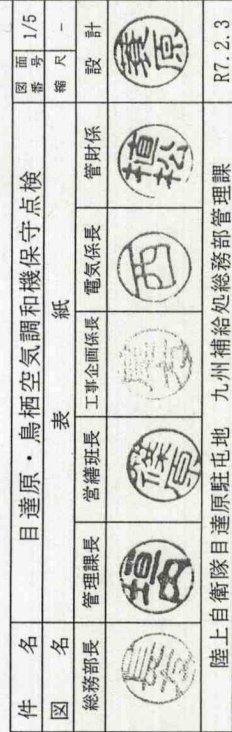 件名 目達原・鳥栖空気調和機保守点検 図面番号 1/5
図名 表紙 縮尺 -
総務部長 管理課長 営繕班長 工事企画係長 電気係長 管財係 設計
堀内 篠原 西 植松 蓑原
陸上自衛隊目達原駐屯地 九州補給処総務部管理課 R7.2.3